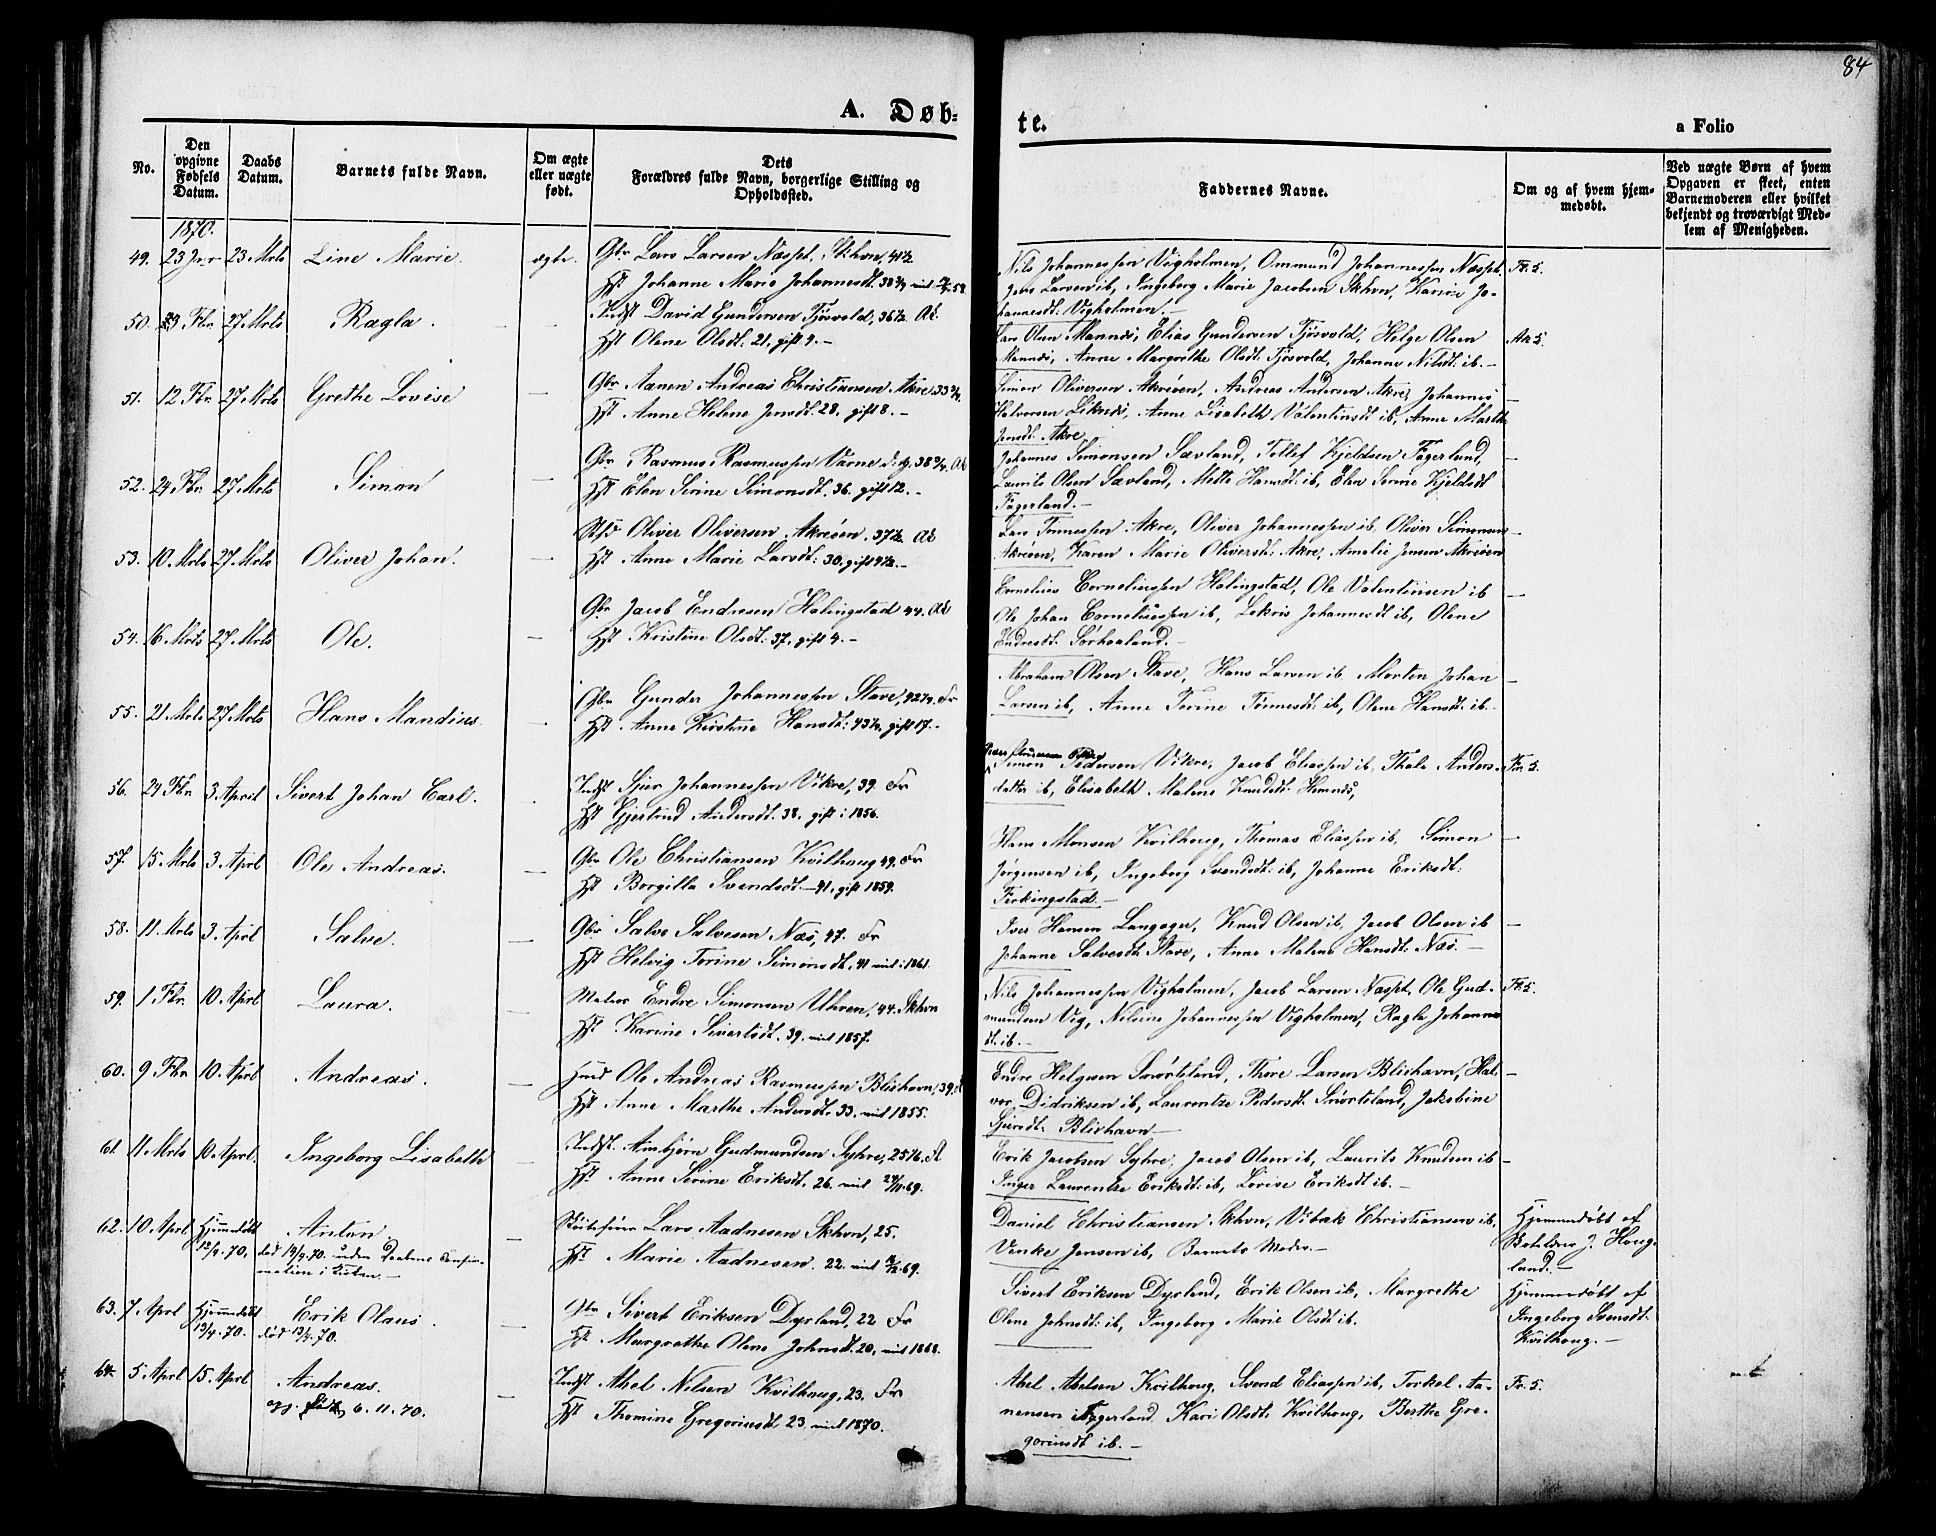 84
A. Døb-
te.
a Folio
No.
Den opgivne Fødsels Datum.
Daabs Datum.
Barnets fulde Navn.
Om ægte eller uægte født.
Dets
Forældres fulde Navn, borgerlige Stilling og
Opholdssted.
Faddernes Navne.
Om og af hvem hjem-
medøbt.
Ved uægte Børn af hvem
Opgaven er skeet, enten
Barnemoderen eller hvilket
bekjendt og troværdigt Med-
lem af Menigheden.
1870.
49. 23 Jnr 23 Mrts Line Marie. ægte. Gbr Lars Larsen Næspt. Skhvn, 41½
Hst Johanne Marie Johannesdt. 38¾
Nils Johannessen Vigholmen, Ommund Johannessen Næspt.
Jens Larsen ib, Ingeborg Marie Jacobsen Skhvn, Karine Jo-
hannesdt. Vigholmen.-
50. 23 Fbr 27 Mrts Ragla. - Indst David Gundersen Tjøsvold, 36½ Ak
Hst Olene Olsdt. 21, gift 9.-
Lars Olsen Mannæs, Elias Gundersen Tjøsvold, Helge Olsen
Mannæs, Anne Margrethe Olsdt. Tjøsvold, Johanne Nilsdt ib.-
51. 12 Fbr 27 Mrts Grethe Lovise - Gbr Aanen Andreas Christiansen Akre 33¾
Hst Anne Helene Jensdt. 28, gift 8.-
Simon Oliversen Akreøen, Andreas Andersen Akre, Johannes
Halvorsen Liknæs, Anne Lisabeth Valentinsdt ib, Anne Marthe
Jensdt. Akre
52. 24 Fbr 27 Mrts Simon - Gbr Rasmus Rasmussen Varne 38¾ Ak
Hst Elen Serine Simonsdt. 36. gift 12.-
Johannes Simonsen Sævland, Tollef Kjeldsen Fagerland,
Laurits Olsen Sævland, Mette Hansdt. ib, Elen Serine Kjeldsdt
Fagerland.-
53. 10 Mrts 27 Mrts Oliver Johan. - Oliver Oliversen Akreøen. 37½ Ak
Hst Anne Marie Larsdt: 30, gift 9½.-
Lars Tønnessen Akre, Oliver Johannessen ib, Oliver Simonsen
Akreøen, Karen Marie Oliversdt: Akre, Amalie Jensen Akreøen
54. 16 Mrts 27 Mrts Ole. - Gbr Jacob Endresen Halingstad 44. Ak
Hst Kristine Olsdt: 37, gift 4.-
Cornelius Corneliussen Halingstad, Ole Valentinsen ib
Ole Johan Corneliussen ib, Johannesdt ib, Olene
Endresdt. Sørhaaland.-
55. 21 Mrts 27 Mrts Hans Mandius. - Gbr Gunder Johannessen Stave, Fr
Hst Anne Kirstine Hansdt: 43½, gift 17.-
Abraham Olsen Stave, Hans Larsen ib Morten Johan
Larsen ib, Anne Torine Tønnesdt: ib, Olene Hansdt. ib.-
56. 24 Fbr 3 April Sivert Johan Carl. - Indst Sjur Johannessen Vikre, 39. Fr
Hst Gjertrud Andersdt. 38. gift i 1856.
Simon Pedersen Vikre, Jacob Eliassen ib, Thale Anders-
datter ib, Elisabeth Malene Knudsdt. Hemnæs,
57. 15 Mrts 3. Aprl Ole Andreas. - Gbr Ole Christiansen Kvilhoug 49. Fr
Hst Borgilla Svendsdt.- 41, gift 1859.
Hans Monsen Kvilhoug, Thomas Eliassen ib, Simon
Jørgensen ib, Ingeborg Svendsdt: ib, Johanne Eriksdt:
Ferkingstad.-
58. 11. Mrts 3 Aprl Salve. - Gbr Salve Salvesen Næs, 47. Fr
Hst Helvig Torine Simonsdt. 41 viet: 1861.
Iver Hansen Langager, Knud Olsen ib, Jacob Olsen ib
Johanne Salvesdt: Stave, Anne Malene Hansdt: Næs.-
59. 1. Fbr. 10. Aprl Laura. - Endre Simonsen Uthren, 44. Skhvn
Hst Karine Sivertsdt. 39. viet 1857.
Nils Johannessen Vigholmen, Jacob Larsen Næspt, Ole Gud-
mundsen Vig, Nilsine Johannessen Vigholmen, Ragla Johannes
dt. ib.-
60. 9 Fbr 10. Aprl Andreas. - Husmd Ole Andreas Rasmussen Blixhavn, 39.
Hst Anne Marthe Andersdt. 33. viet 1855.
Endre Helgesen Snørteland, Thore Larsen Blixhavn, Hal-
vor Didriksen ib, Laurentze Pedersdt. Snørteland, Jakobine
Sjursdt. Blixhavn-
61 11. Mrts 10. Aprl. Ingeborg Lisabeth - Indst. Arnbjørn Gudmundsen Syhre,
Hst. Anne Serine Eriksdt. 26. viet 69.
Erik Jacobsen Syhre, Jacob Olsen ib, Laurits Knudsen ib
Inger Laurentze Eriksdt: ib, Lovise Eriksdt ib.-
62. 10 Aprl Hjemmedøbt 12/4. 70. Anton.
død 14/4. 70. uden Daabens Confir-
mation i Kirken.-
Lars Aadnesen Skhvn, 25.
Hst. Marie Aadnesen. 22. viet 69.
Daniel Christiansen Skhvn, Vibek Christiansen ib,
Venke Jensen ib, Barnets Moder.-
Hjemmedøbt af
J. Houg-
land.-
63. 7 Aprl Hjemmedøbt 13/4. 70. Erik Olaus.
død 13/4. 70.
Gbr Sivert Eriksen Dyrland, 22 Fr
Hst Margrethe Olene Johnsdt. 20, viet 1868.
Sivert Eriksen Dyrland, Erik Olsen ib, Margrethe
Olene Johnsdt: ib, Ingeborg Marie Olsdt ib.
Hjemmedøbt af
Ingeborg Svensdt.
Kvilhoug.-
64. 5 Aprl 15. Aprl Andreas.
6. 11. 70.
- Indst Abel Nilsen Kvilhoug, 23. Fr
Hst Thomine Gregoriusdt 23. viet 1870.
Abel Abelsen Kvilhoug, Svend Eliassen ib, Torkel Aa-
nensen Fagerland, Kari Olsdt. Kvilhoug, Berthe Gre-
goriusdt ib.-